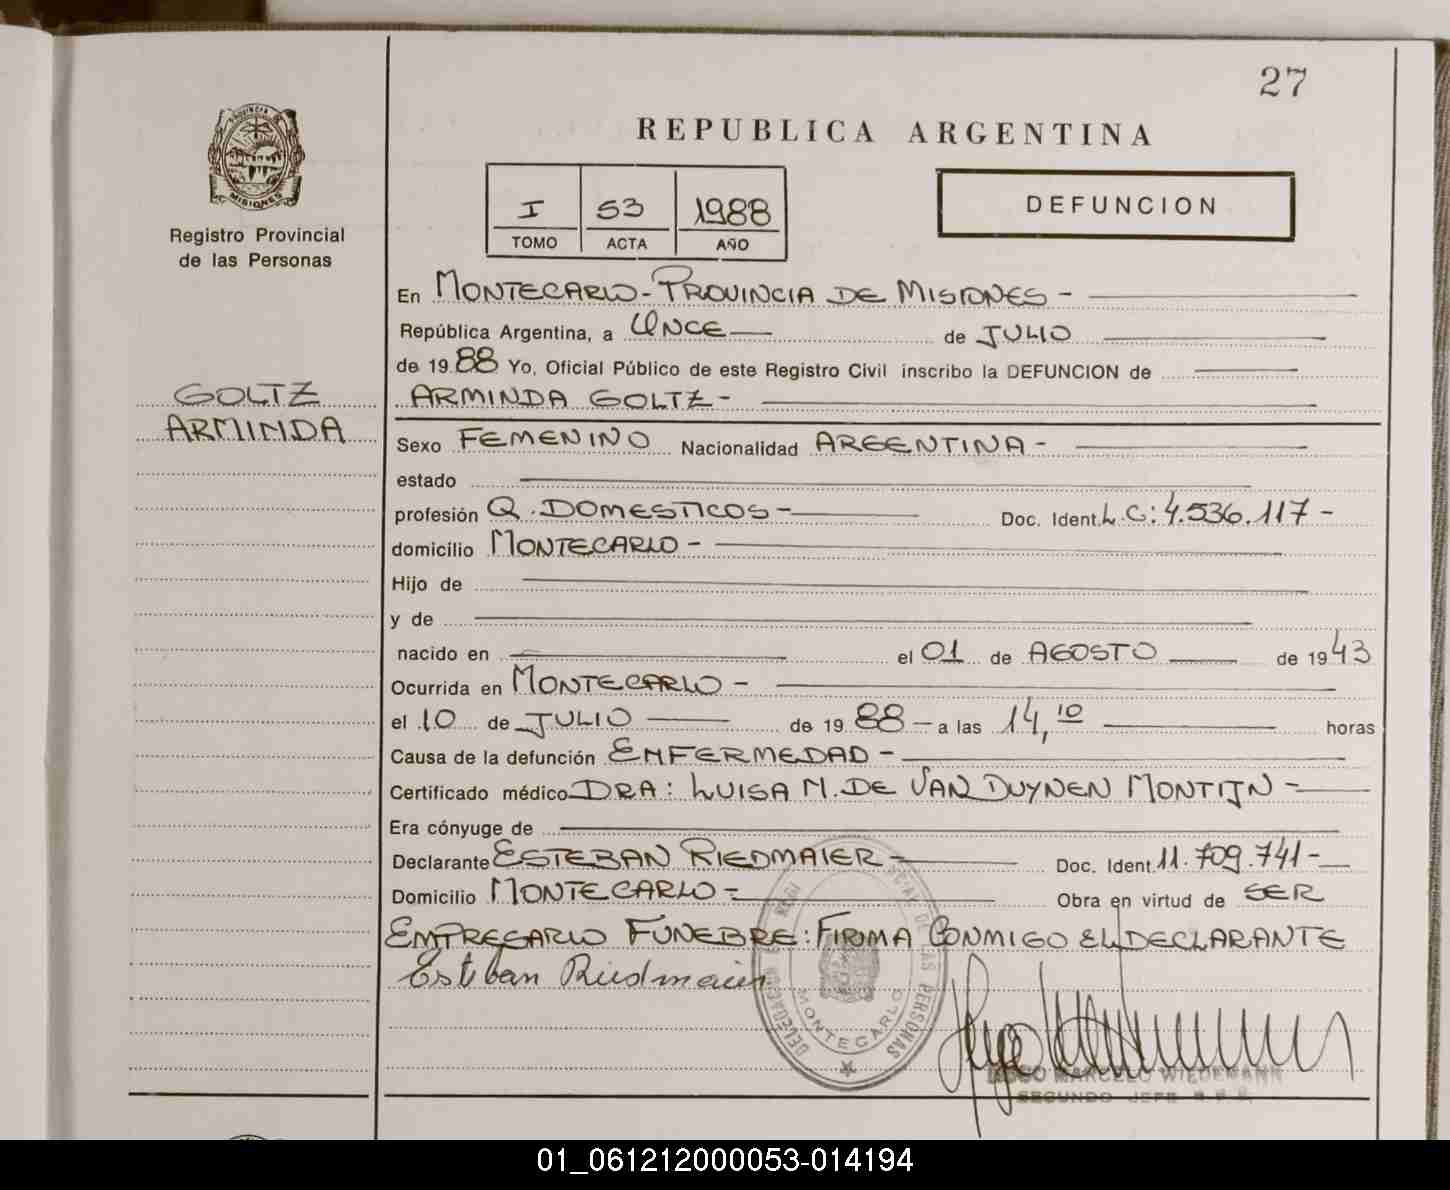 27
PROVINCIA DE
MISIONES
Registro Provincial
de las Personas
REPUBLICA ARGENTINA
I 53 1988
TOMO ACTA AÑO
DEFUNCION
GOLTZ
ARMINDA
En MONTECARLO-PROVINCIA DE MISIONES -
República Argentina, a ONCE de JULIO
de 1988 Yo, Oficial Público de este Registro Civil inscribo la DEFUNCION de
ARMINDA GOLTZ-
Sexo FEMENINO Nacionalidad ARGENTINA -
estado
profesión Q. DOMESTICOS- Doc. Ident. L.C: 4.536.117 -
domicilio MONTECARLO -
Hijo de
y de
nacido en el 01 de AGOSTO de 1943
Ocurrida en MONTECARLO -
el 10 de JULIO de 1988 - a las 14,10 horas
Causa de la defunción ENFERMEDAD -
Certificado médico DRA: LUISA M. DE VAN DUYNEN MONTIJN -
Era cónyuge de
Declarante ESTEBAN RIEDMAIER - Doc. Ident. 11.709.741-
Domicilio MONTECARLO - Obra en virtud de SER
EMPRESARIO FUNEBRE: FIRMA CONMIGO EL DECLARANTE
Esteban Riedmaier
MONTECARLO
HUGO MARCELO WIEDEMANN
SEGUNDO JEFE R.P.P.
01_061212000053-014194